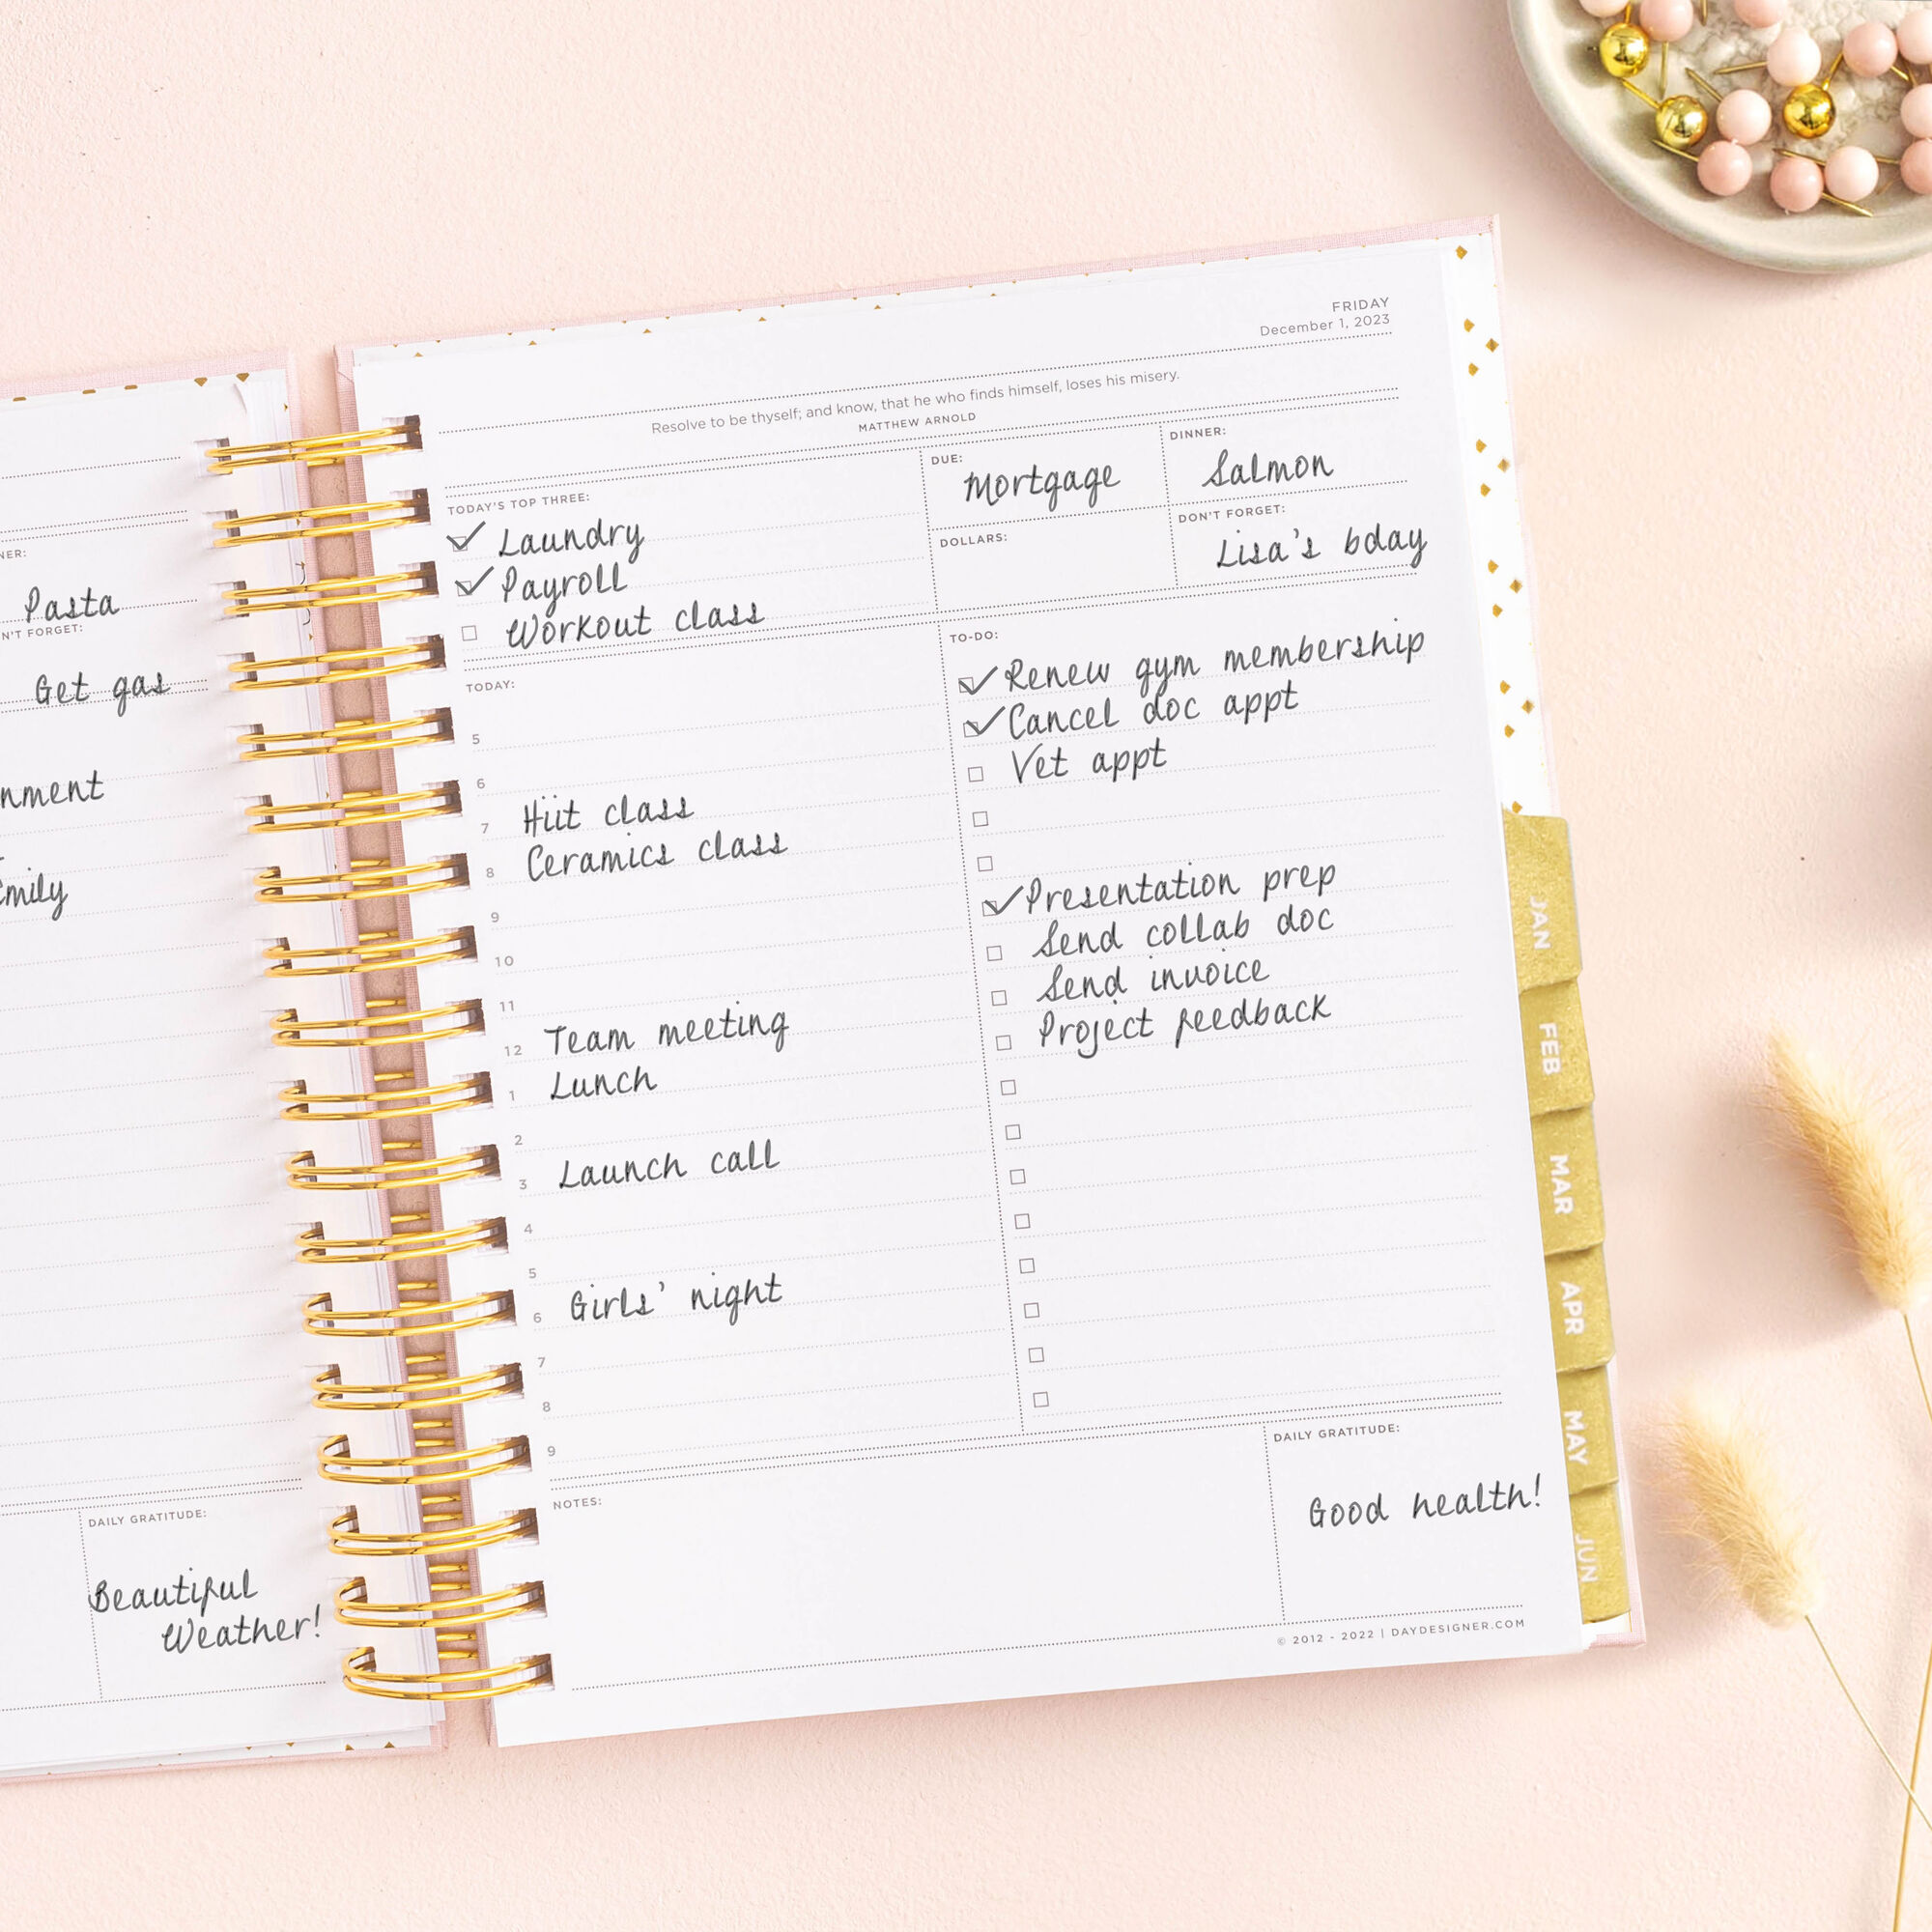 NER:
Pasta
N'T FORGET:
Get gas
nment
Emily
DAILY GRATITUDE:
Beautiful
Weather!
FRIDAY
December 1, 2023
Resolve to be thyself; and know, that he who finds himself, loses his misery.
MATTHEW ARNOLD
TODAY'S TOP THREE:
Laundry
Payroll
Workout class
DUE:
Mortgage
DINNER:
Salmon
DOLLARS:
DON'T FORGET:
Lisa's bday
TODAY:
5
6
7 Hiit class
8 Ceramics class
9
10
11
12 Team meeting
1 Lunch
2
3 Launch call
4
5
6 Girls' night
7
8
9
TO-DO:
Renew gym membership
Cancel doc appt
Vet appt
Presentation prep
Send collab doc
Send invoice
Project feedback
NOTES:
DAILY GRATITUDE:
Good health!
© 2012 - 2022 | DAYDESIGNER.COM
JAN
FEB
MAR
APR
MAY
JUN